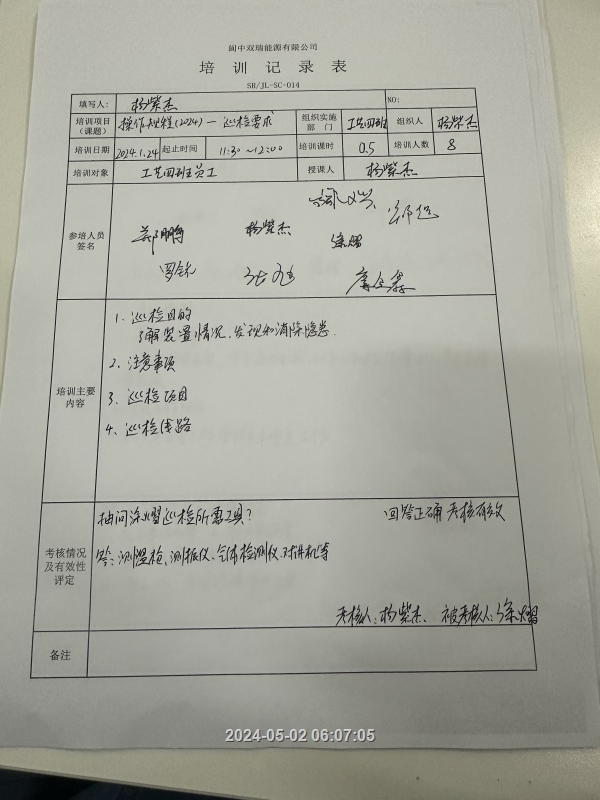 阆中双瑞能源有限公司
培训记录表
SR/JL-SC-014
填写人: 杨紫杰 NO:
培训项目(课题) 操作规程(2024)—巡检要求 组织实施部门 工艺四班 组织人 杨紫杰
培训日期 2024.1.24 起止时间 11:30~12:00 培训课时 0.5 培训人数 8
培训对象 工艺四班员工 授课人 杨紫杰
参培人员签名
郑鹏 杨紫杰 涂熠
培训主要内容
1、巡检目的
了解装置情况、发现和消除隐患.
2、注意事项
3、巡检项目
4、巡检线路
考核情况及有效性评定
抽问涂熠巡检所需工具? 回答正确 考核有效
答:测温枪、测振仪、气体检测仪、对讲机等
考核人:杨紫杰、被考核人:涂熠
备注
2024-05-02 06:07:05